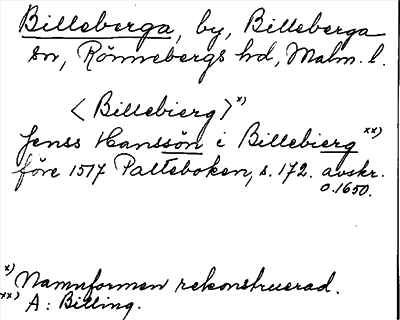 Billeberga, by, Billeberga
sn, Rönnebergs hd, Malm. l.
<Billebierg> x)
Jenss Hanssön i Billebierg xx)
före 1517 Palteboken, s. 172. avskr.
o. 1650.
x) Namnformen rekonstruerad.
xx) A: Billing.